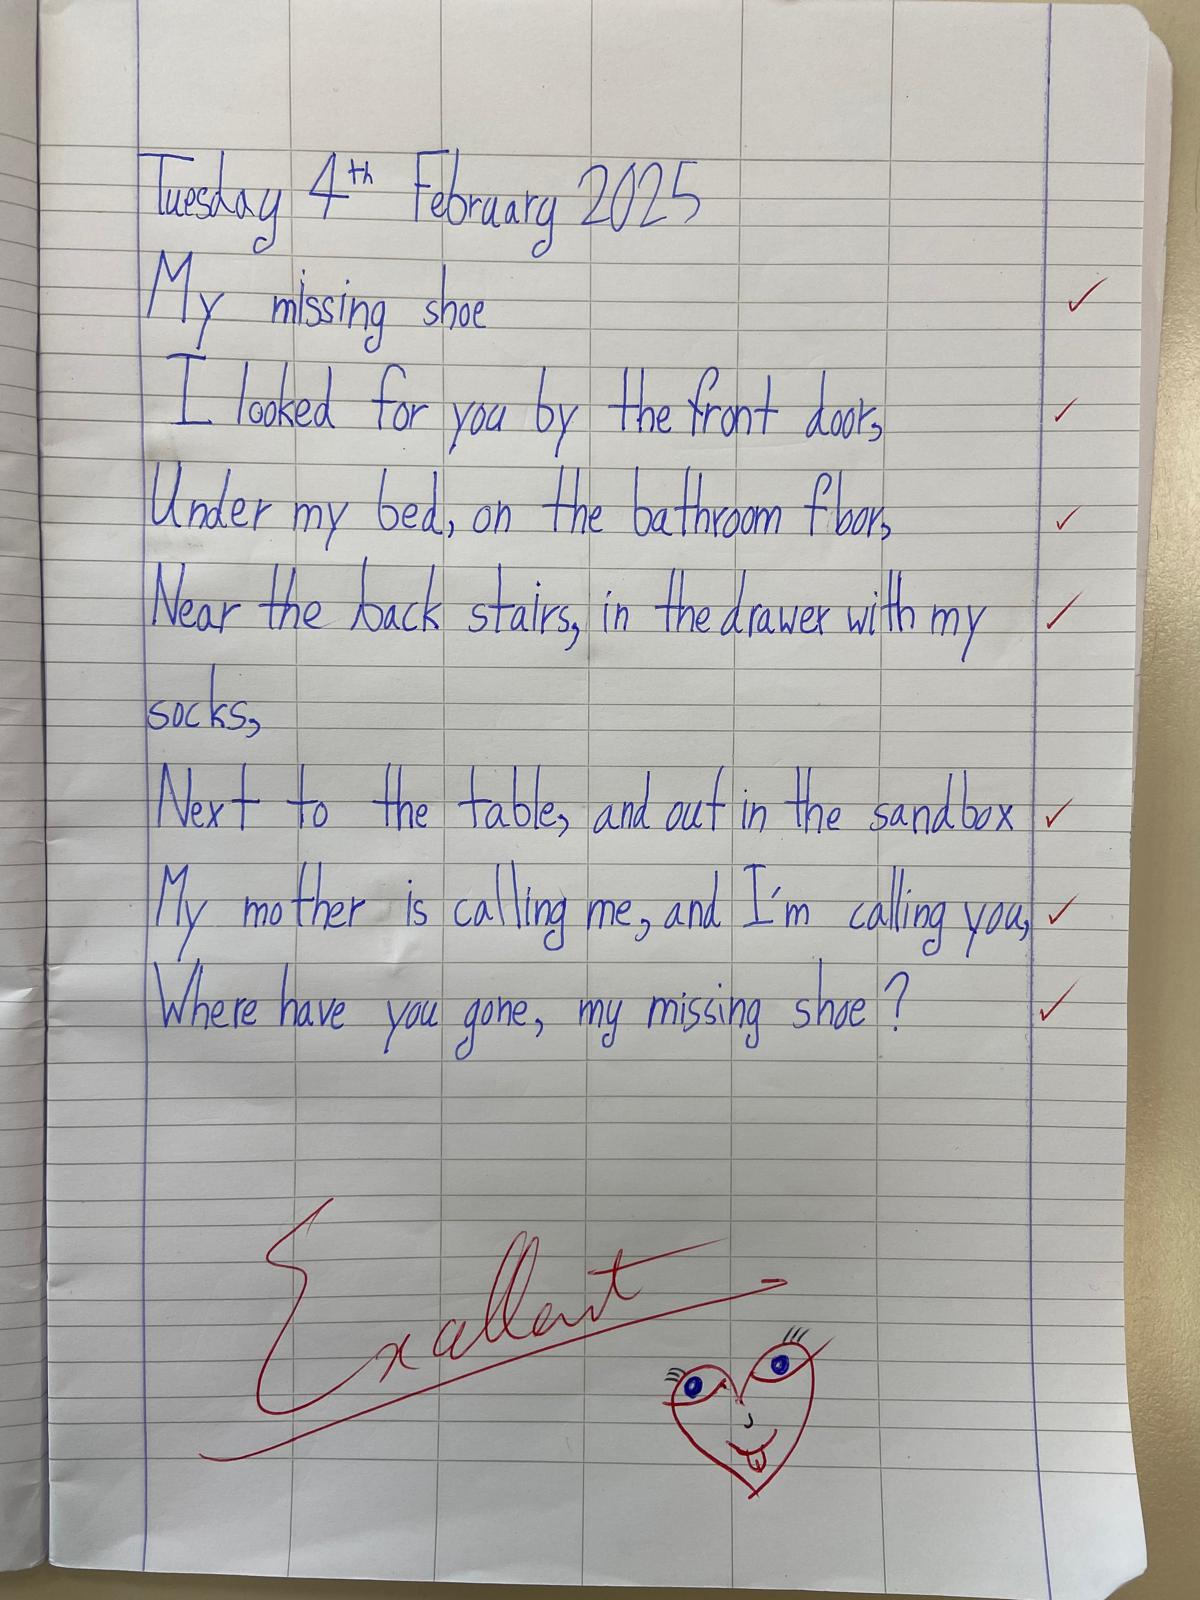 Tuesday 4th February 2025
My missing shoe
I looked for you by the front door,
Under my bed, on the bathroom floor,
Near the back stairs, in the drawer with my
socks,
Next to the table, and out in the sandbox
My mother is calling me, and I'm calling you,
Where have you gone, my missing shoe?
Excellent